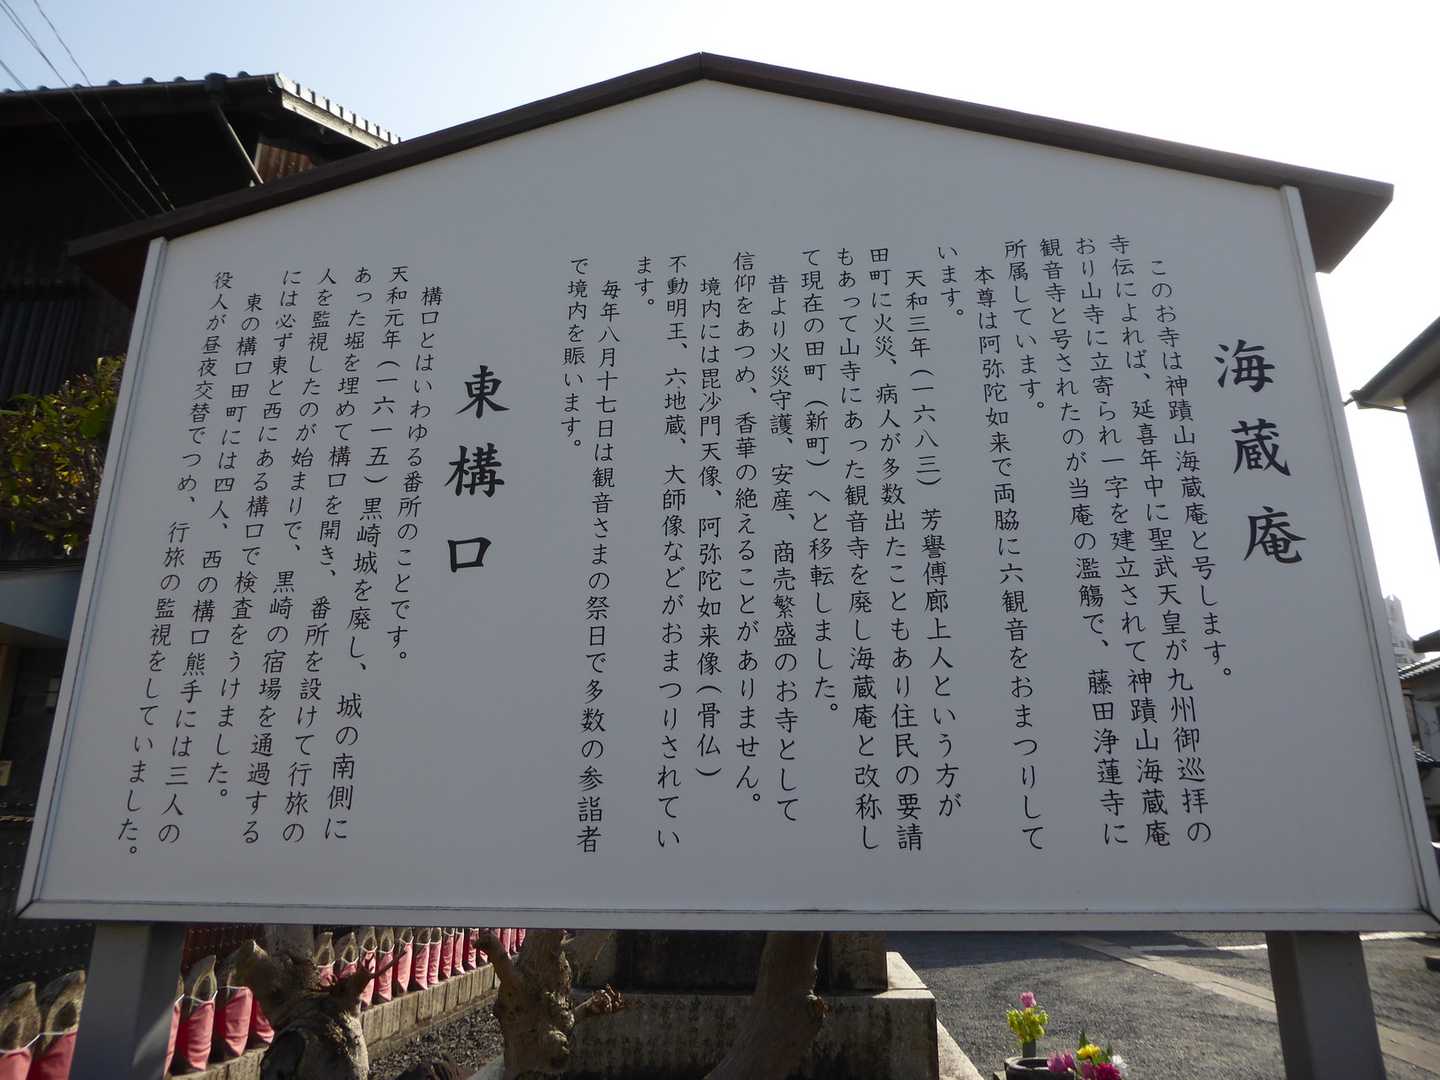 海蔵庵
このお寺は神蹟山海蔵庵と号します。
寺伝によれば、延喜年中に聖武天皇が九州御巡拝の
おり山寺に立寄られ一字を建立されて神蹟山海蔵庵
観音寺と号されたのが当庵の濫觴で、藤田浄蓮寺に
所属しています。
本尊は阿弥陀如来で両脇に六観音をおまつりして
います。
天和三年(一六八三)芳譽傳廊上人という方が
田町に火災、病人が多数出たこともあり住民の要請
もあって山寺にあった観音寺を廃し海蔵庵と改称し
て現在の田町(新町)へと移転しました。
昔より火災守護、安産、商売繁盛のお寺として
信仰をあつめ、香華の絶えることがありません。
境内には毘沙門天像、阿弥陀如来像(骨仏)
不動明王、六地蔵、大師像などがおまつりされてい
ます。
毎年八月十七日は観音さまの祭日で多数の参詣者
で境内を賑います。
東構口
構口とはいわゆる番所のことです。
天和元年(一六一五)黒崎城を廃し、城の南側に
あった堀を埋めて構口を開き、番所を設けて行旅の
人を監視したのが始まりで、黒崎の宿場を通過する
には必ず東と西にある構口で検査をうけました。
東の構口田町には四人、西の構口熊手には三人の
役人が昼夜交替でつめ、行旅の監視をしていました。